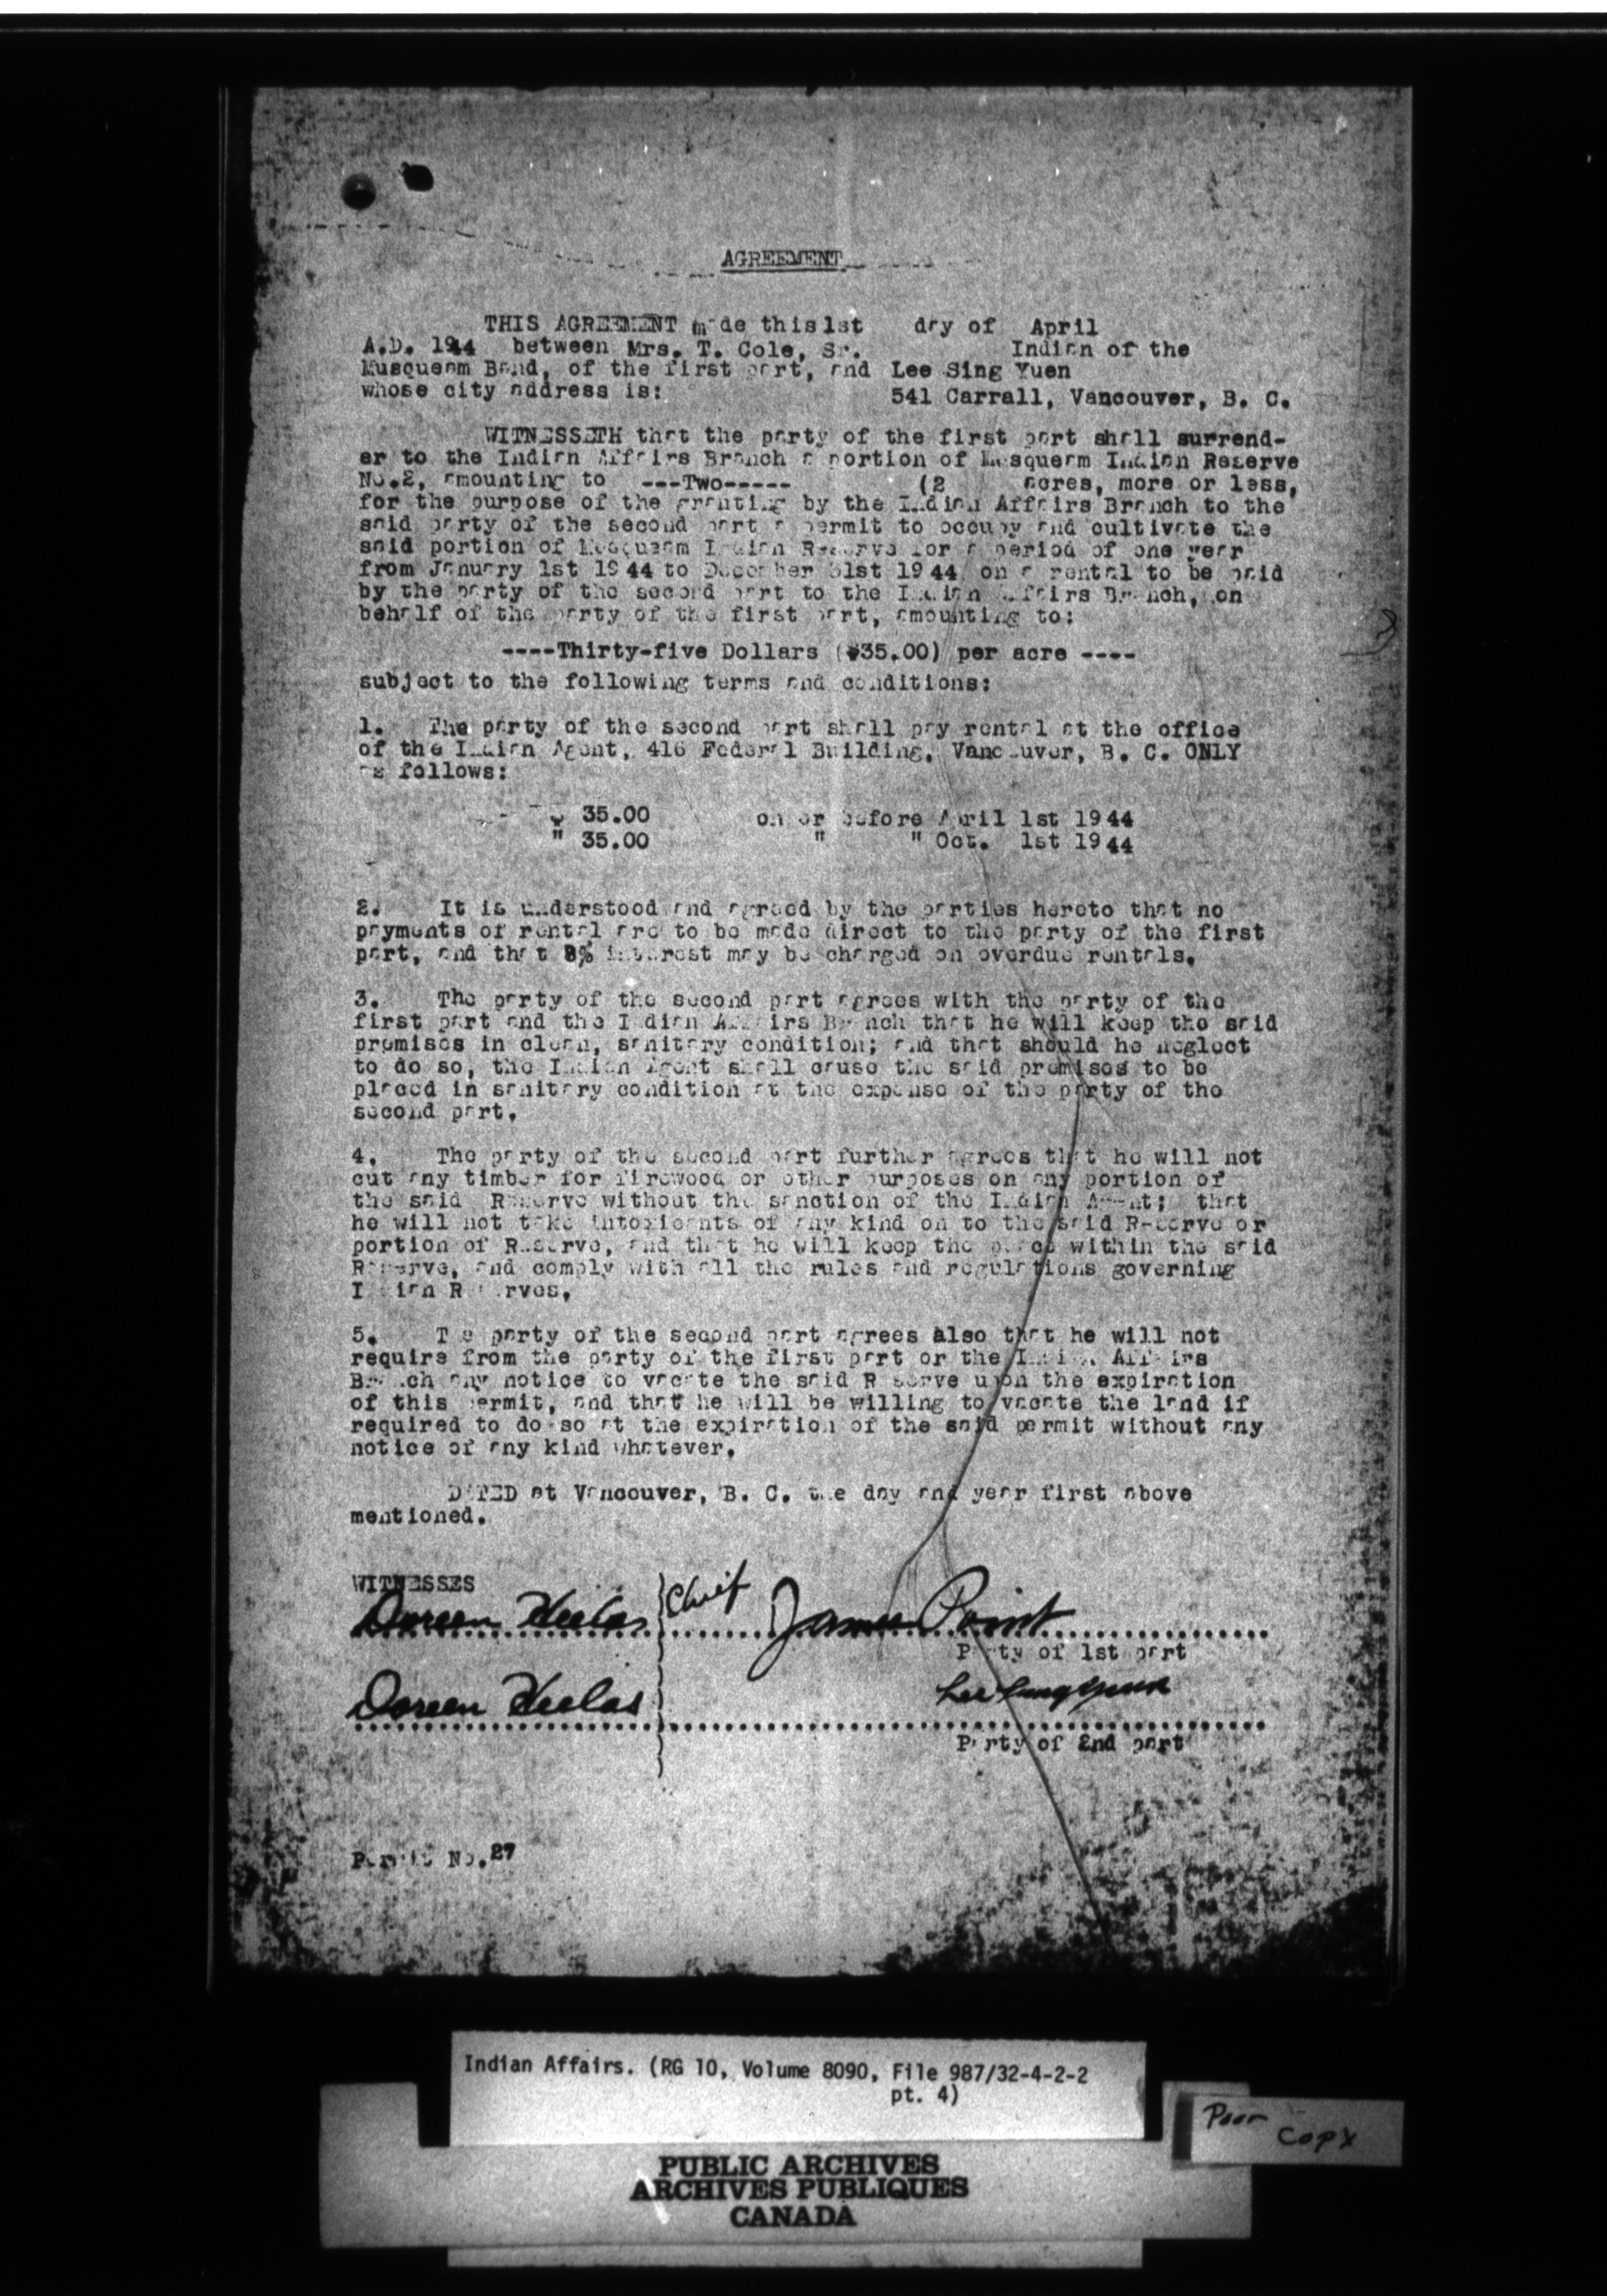 AGREEMENT
THIS AGREEMENT made this 1st day of April
A.D. 1944 between Mrs. T. Cole, Sr. Indian of the
Musqueam Band, of the first part, and Lee Sing Yuen
whose city address is: 541 Carrall, Vancouver, B. C.
WITNESSETH that the party of the first part shall surrend-
er to the Indian Affairs Branch a portion of Musqueam Indian Reserve
No.2, amounting to ---Two----- (2 acres, more or less,
for the purpose of the granting by the Indian Affairs Branch to the
said party of the second part a permit to occupy and cultivate the
said portion of Musqueam Indian Reserve for a period of one year
from January 1st 1944 to December 31st 1944 on a rental to be paid
by the party of the second part to the Indian Affairs Branch, on
behalf of the party of the first part, amounting to:
----Thirty-five Dollars ($35.00) per acre ----
subject to the following terms and conditions:
1. The party of the second part shall pay rental at the office
of the Indian Agent, 416 Federal Building, Vancouver, B. C. ONLY
as follows:
$ 35.00 on or before April 1st 1944
" 35.00 " " Oct. 1st 1944
2. It is understood and agreed by the parties hereto that no
payments of rental are to be made direct to the party of the first
part, and that 8% interest may be charged on overdue rentals.
3. The party of the second part agrees with the party of the
first part and the Indian Affairs Branch that he will keep the said
premises in clean, sanitary condition; and that should he neglect
to do so, the Indian Agent shall cause the said premises to be
placed in sanitary condition at the expense of the party of the
second part.
4. The party of the second part further agrees that he will not
cut any timber for firewood or other purposes on any portion of
the said Reserve without the sanction of the Indian Agent; that
he will not take intoxicants of any kind on to the said Reserve or
portion of Reserve, and that he will keep the peace within the said
Reserve, and comply with all the rules and regulations governing
Indian Reserves.
5. The party of the second part agrees also that he will not
require from the party of the first part or the Indian Affairs
Branch any notice to vacate the said Reserve upon the expiration
of this permit, and that he will be willing to vacate the land if
required to do so at the expiration of the said permit without any
notice of any kind whatever.
DATED at Vancouver, B. C. the day and year first above
mentioned.
WITNESSES
Doreen Heelas Chief James Point
Party of 1st part
Doreen Heelas Lee Sing Yuen
Party of 2nd part
Permit No. 27
Indian Affairs. (RG 10, Volume 8090, File 987/32-4-2-2
pt. 4)
Poor
Copy
PUBLIC ARCHIVES
ARCHIVES PUBLIQUES
CANADA